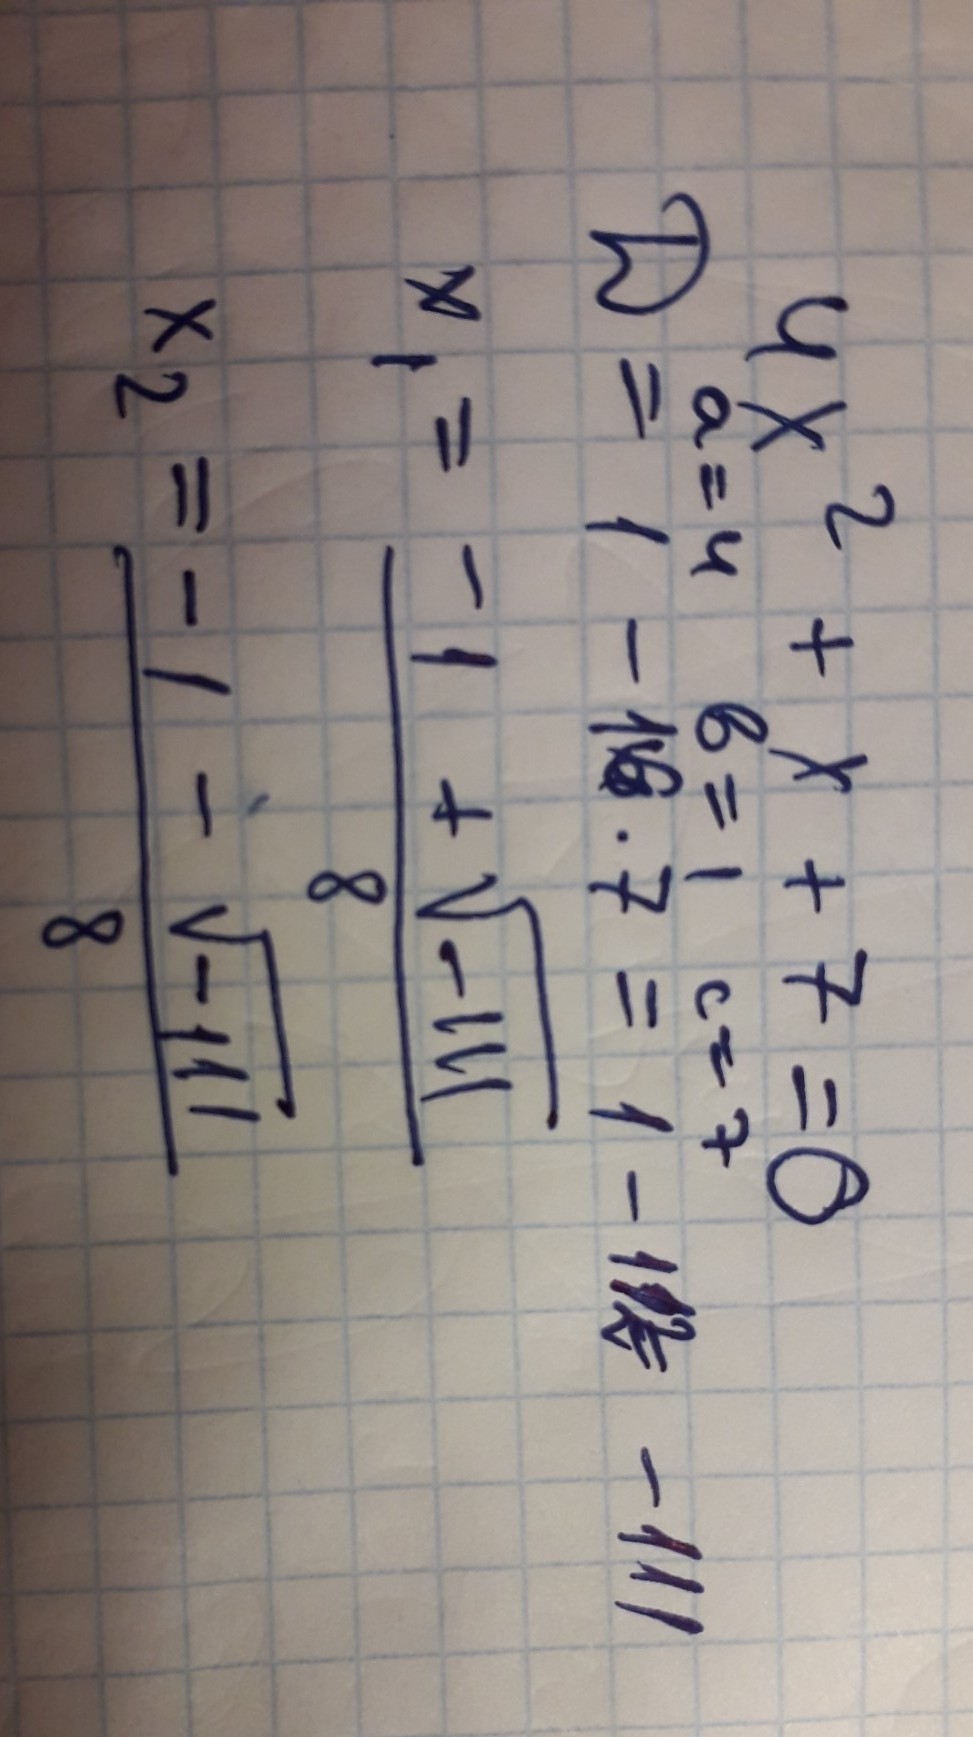 4x² + x + 7 = 0
a = 4 в = 1 c = 7
D = 1 - 16 · 7 = 1 - 112 = -111
x₁ = (-1 + √-111) / 8
x₂ = (-1 - √-111) / 8